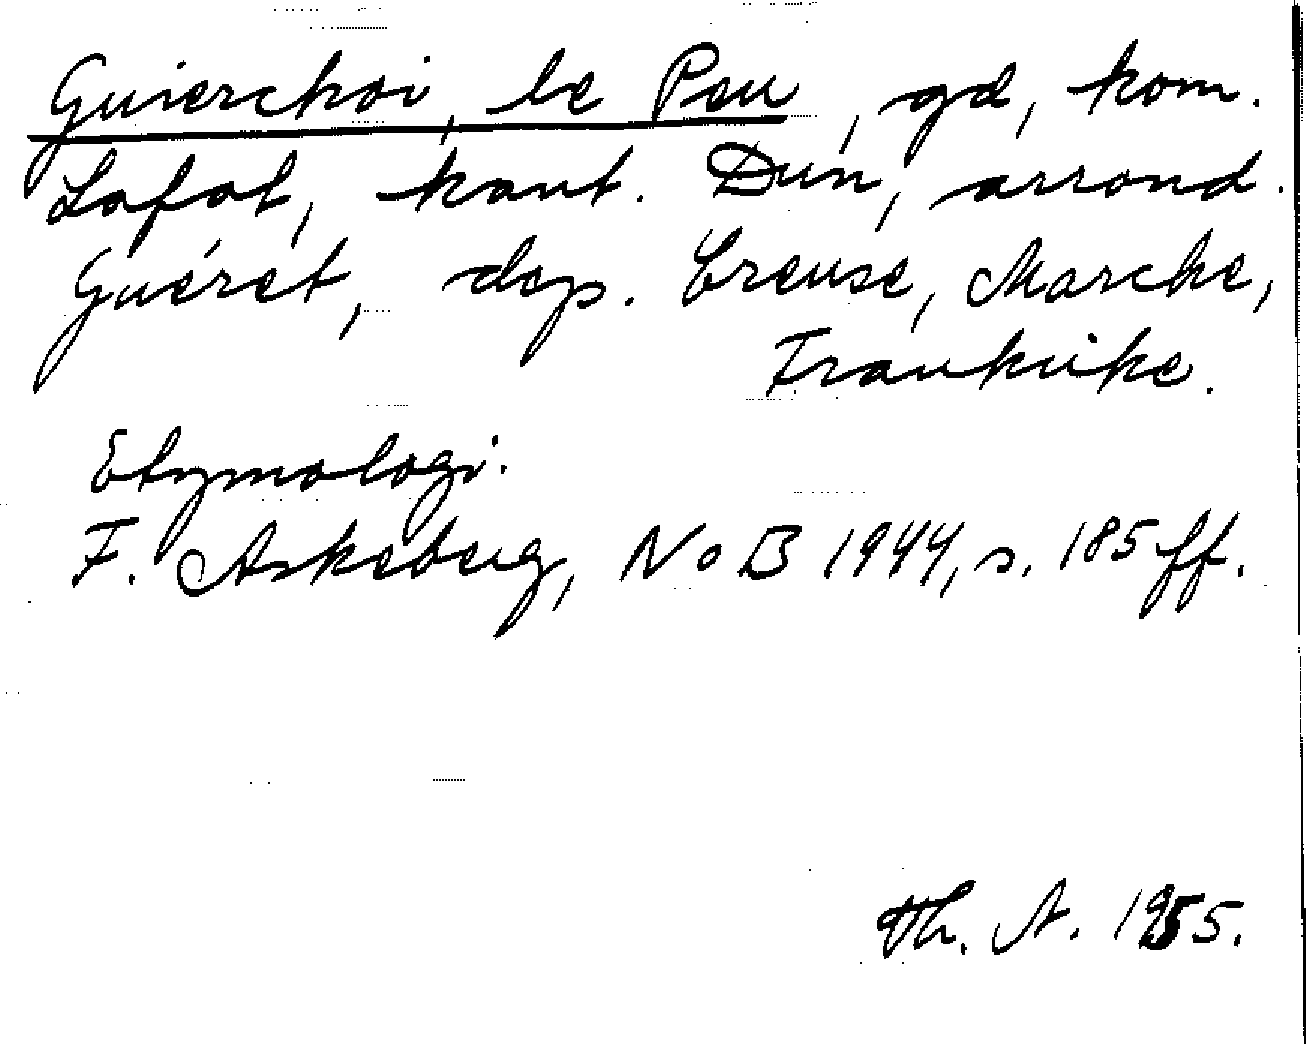 Guierchoi, le Peu, gd, kom.
Lafat, kant. Dun, arrond.
Guéret, dep. Creuse, Marche,
Frankrike.
Etymologi.
F. Askeberg, NoB 1944, s. 185 ff.
Th. A. 1955.